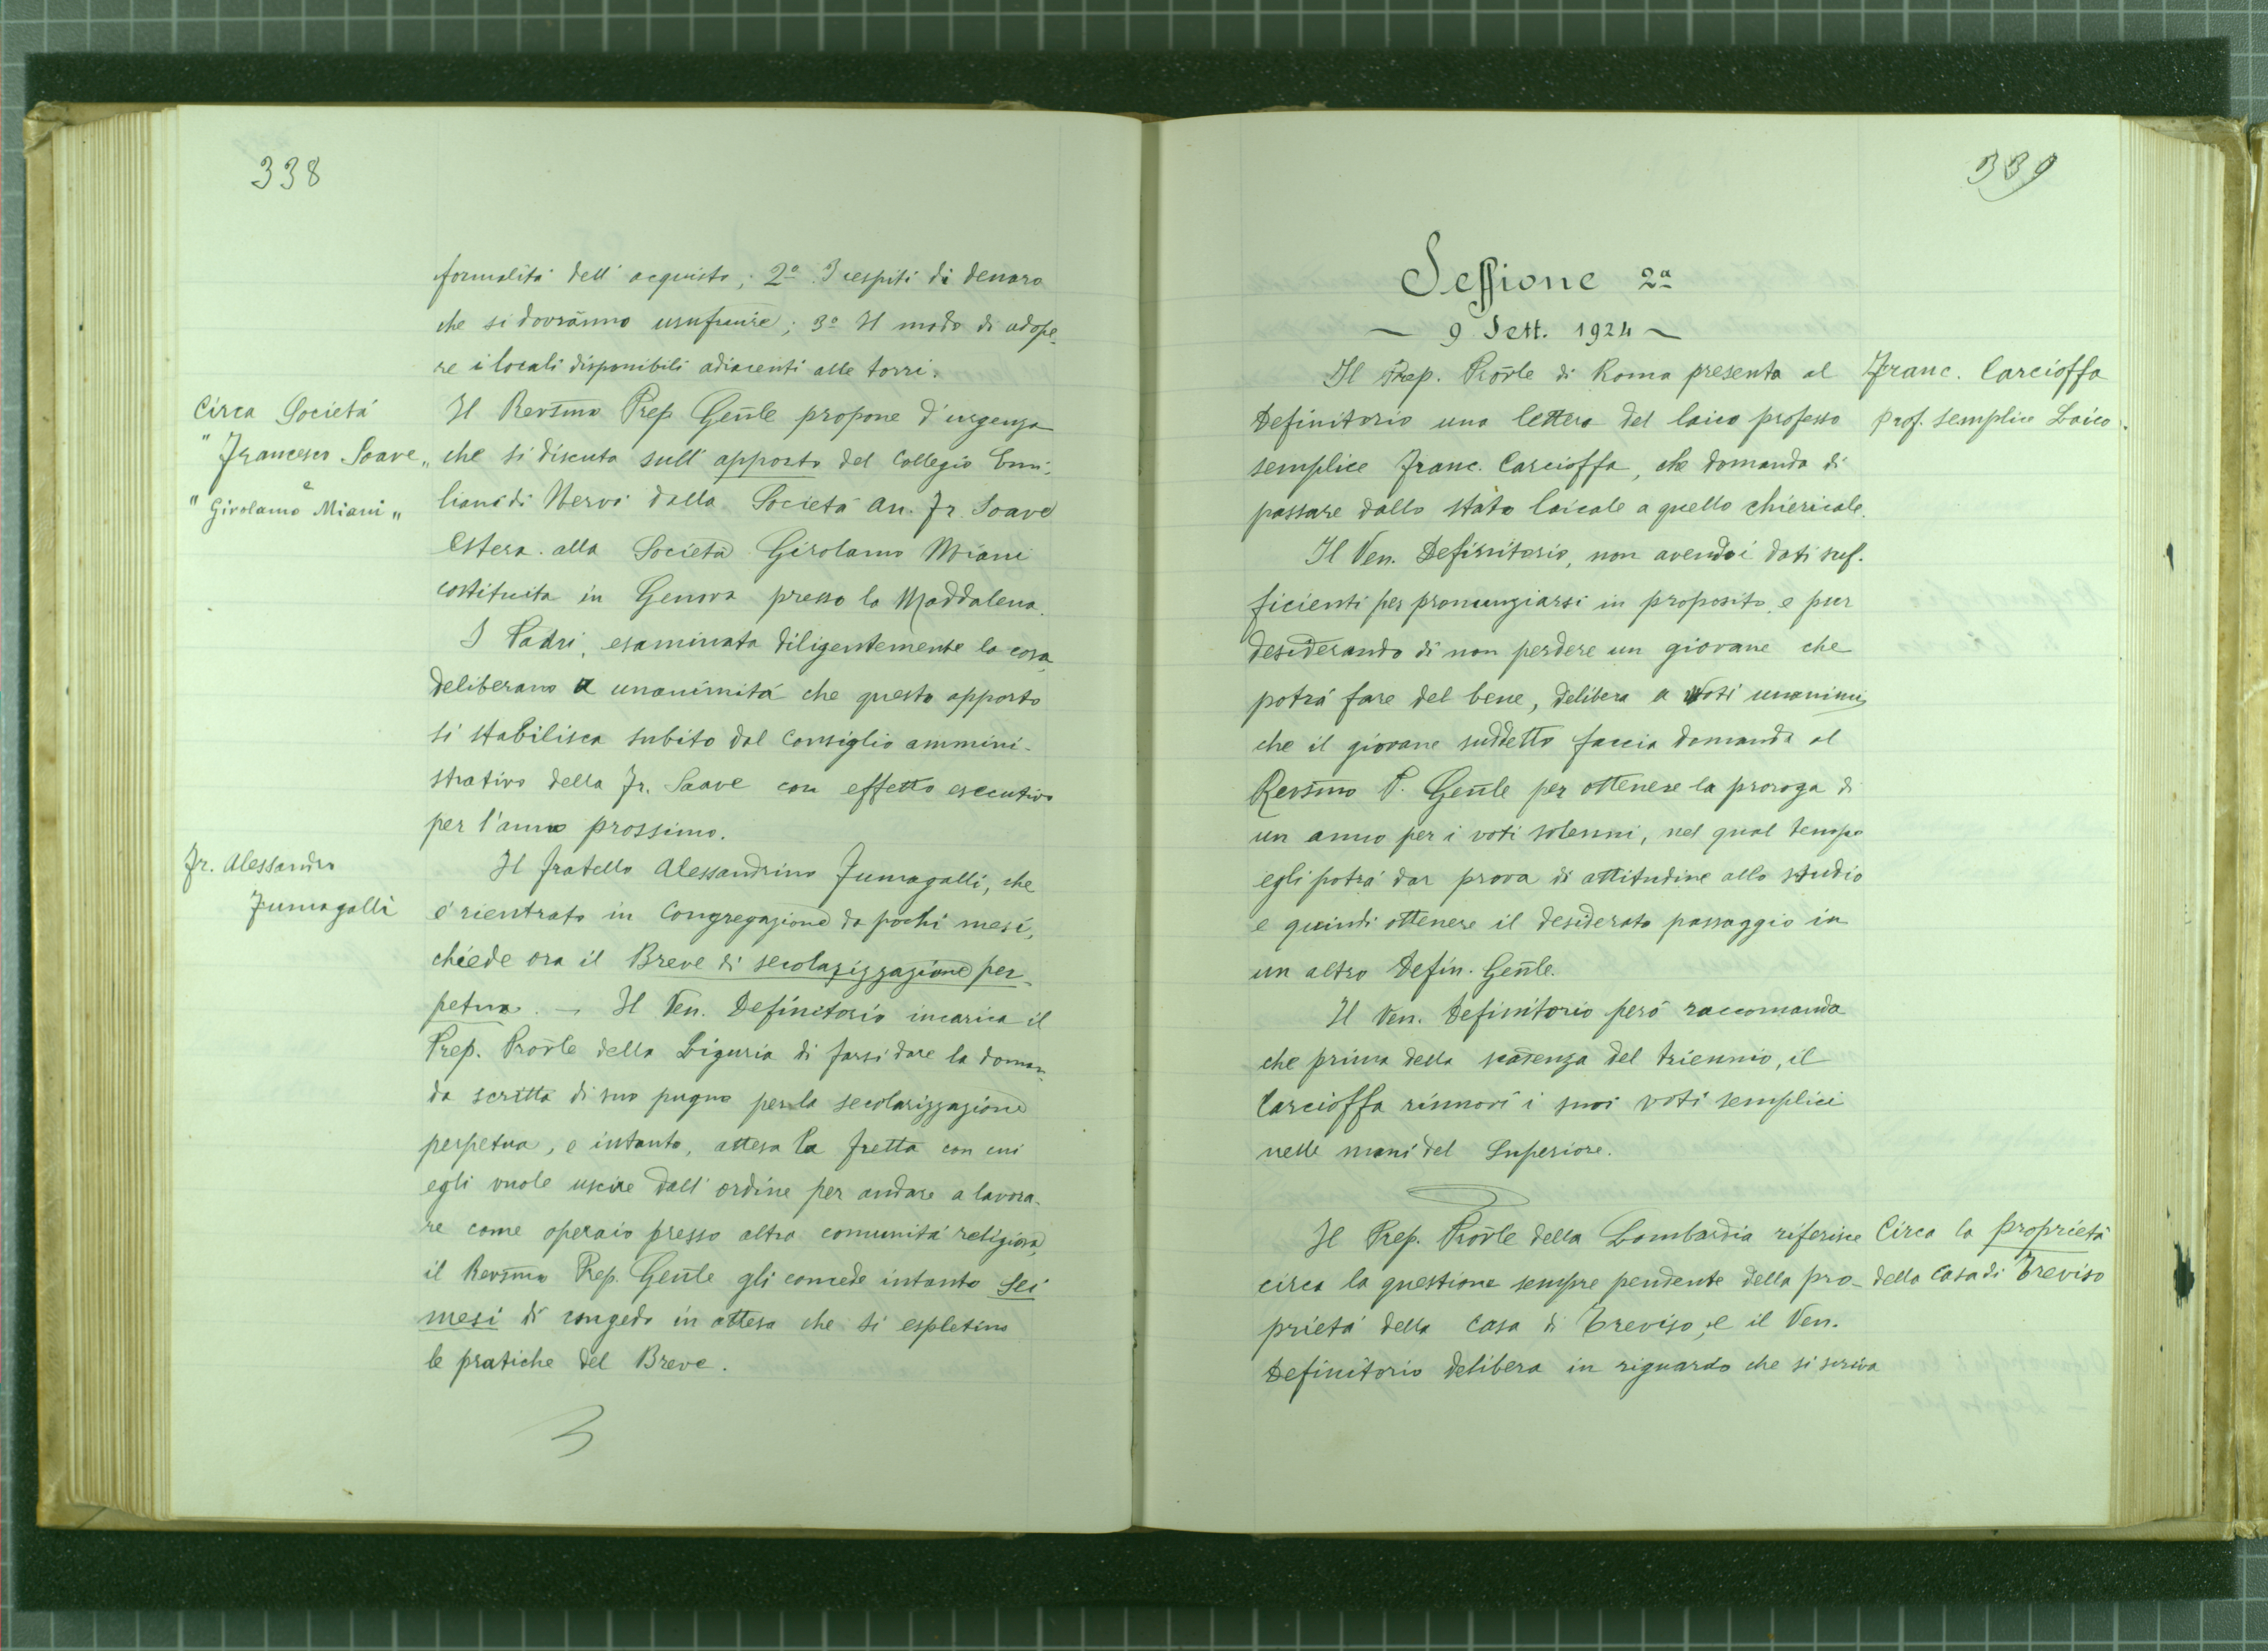 338
formalità dell'acquisto; 2º I cespiti di denaro
che si dovranno usufruire; 3º Il modo di adope-
re i locali disponibili adiacenti alle torri.
Circa Società
"Francesco Soave"
e
"Girolamo Miani"
Il Revsmo Prep Genle propone d'urgenza
che si discuta sull'apporto del Collegio Emi-
liani di Nervi dalla Società An. Fr. Soave
Estera alla Società Girolamo Miani
costituita in Genova presso la Maddalena.
I Padri, esaminata diligentemente la cosa,
deliberano a unanimità che questo apporto
si stabilisca subito dal Consiglio ammini-
strativo della Fr. Soave con effetto esecutivo
per l'anno prossimo.
Fr. Alessandro
Fumagalli
Il fratello Alessandrino Fumagalli, che
è rientrato in Congregazione da pochi mesi,
chiede ora il Breve di secolarizzazione per-
petua. — Il Ven. Definitorio incarica il
Prep. Provle della Liguria di farsi dare la doman-
da scritta di suo pugno per la secolarizzazione
perpetua, e intanto, attesa la fretta con cui
egli vuole uscire dall'ordine per andare a lavora-
re come operaio presso altra comunità religiosa,
il Revsmo Prep. Genle gli concede intanto sei
mesi di congedo in attesa che si espletino
le pratiche del Breve.
339
Sessione 2ª
~ 9 Sett. 1924 ~
Il Prep. Provle di Roma presenta al
Definitorio una lettera del laico professo
semplice Franc. Carcioffa, che domanda di
passare dallo stato laicale a quello chiericale.
Franc. Carcioffa
prof. semplice Laico.
Il Ven. Definitorio, non avendo i dati suf-
ficienti per pronunziarsi in proposito, e pur
desiderando di non perdere un giovane che
potrà fare del bene, delibera a voti unanimi
che il giovane suddetto faccia domanda al
Revsmo P. Genle per ottenere la proroga di
un anno per i voti solenni, nel qual tempo
egli potrà dar prova di attitudine allo studio
e quindi ottenere il desiderato passaggio in
un altro Defin. Genle.
Il Ven. Definitorio però raccomanda
che prima della scadenza del triennio, il
Carcioffa rinnovi i suoi voti semplici
nelle mani del Superiore.
Il Prep. Provle della Lombardia riferisce
circa la questione sempre pendente della pro-
prietà della Casa di Treviso, e il Ven.
Definitorio delibera in riguardo che si scriva
Circa la proprietà
della Casa di Treviso